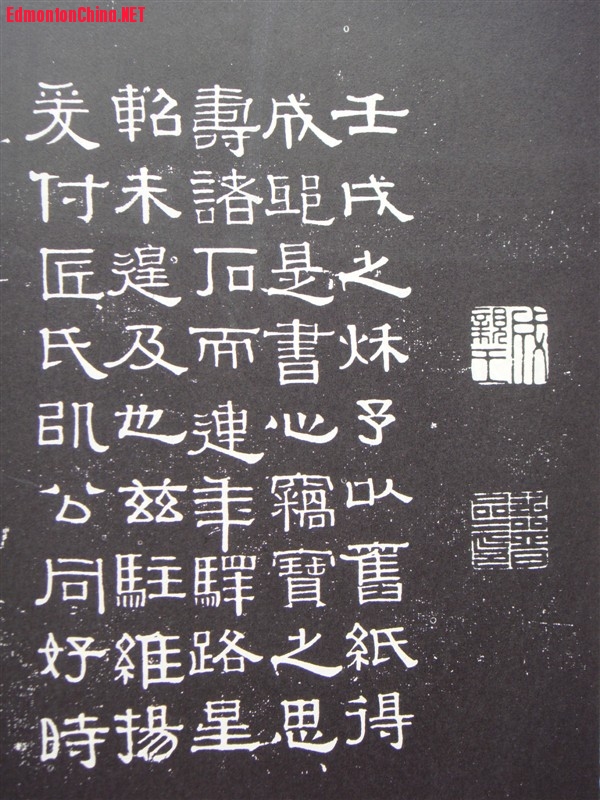 EdmontonChina.NET
成親王
壬戌之秌予以舊紙得
成邸是書心竊寶之思
壽諸石而連年驛路星
軺未遑及也茲駐維揚
爰付匠氏以公同好時